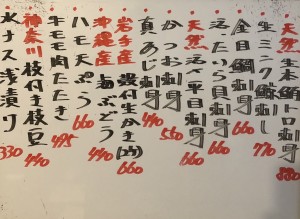 天然生本鮪トロ刺身 880
生ミンク鯨刺し 770
金目鯛刺身 660
えたらい貝刺身 660
天然平目刺身
かつお刺身 550
真あじ刺身 440
岩手産殻付生かき(内) 660
沖縄産海ぶどう 440
ハモ天ぷら 660
牛モモ肉たたき 495
神奈川枝付き枝豆 440
水ナス浅漬り 330